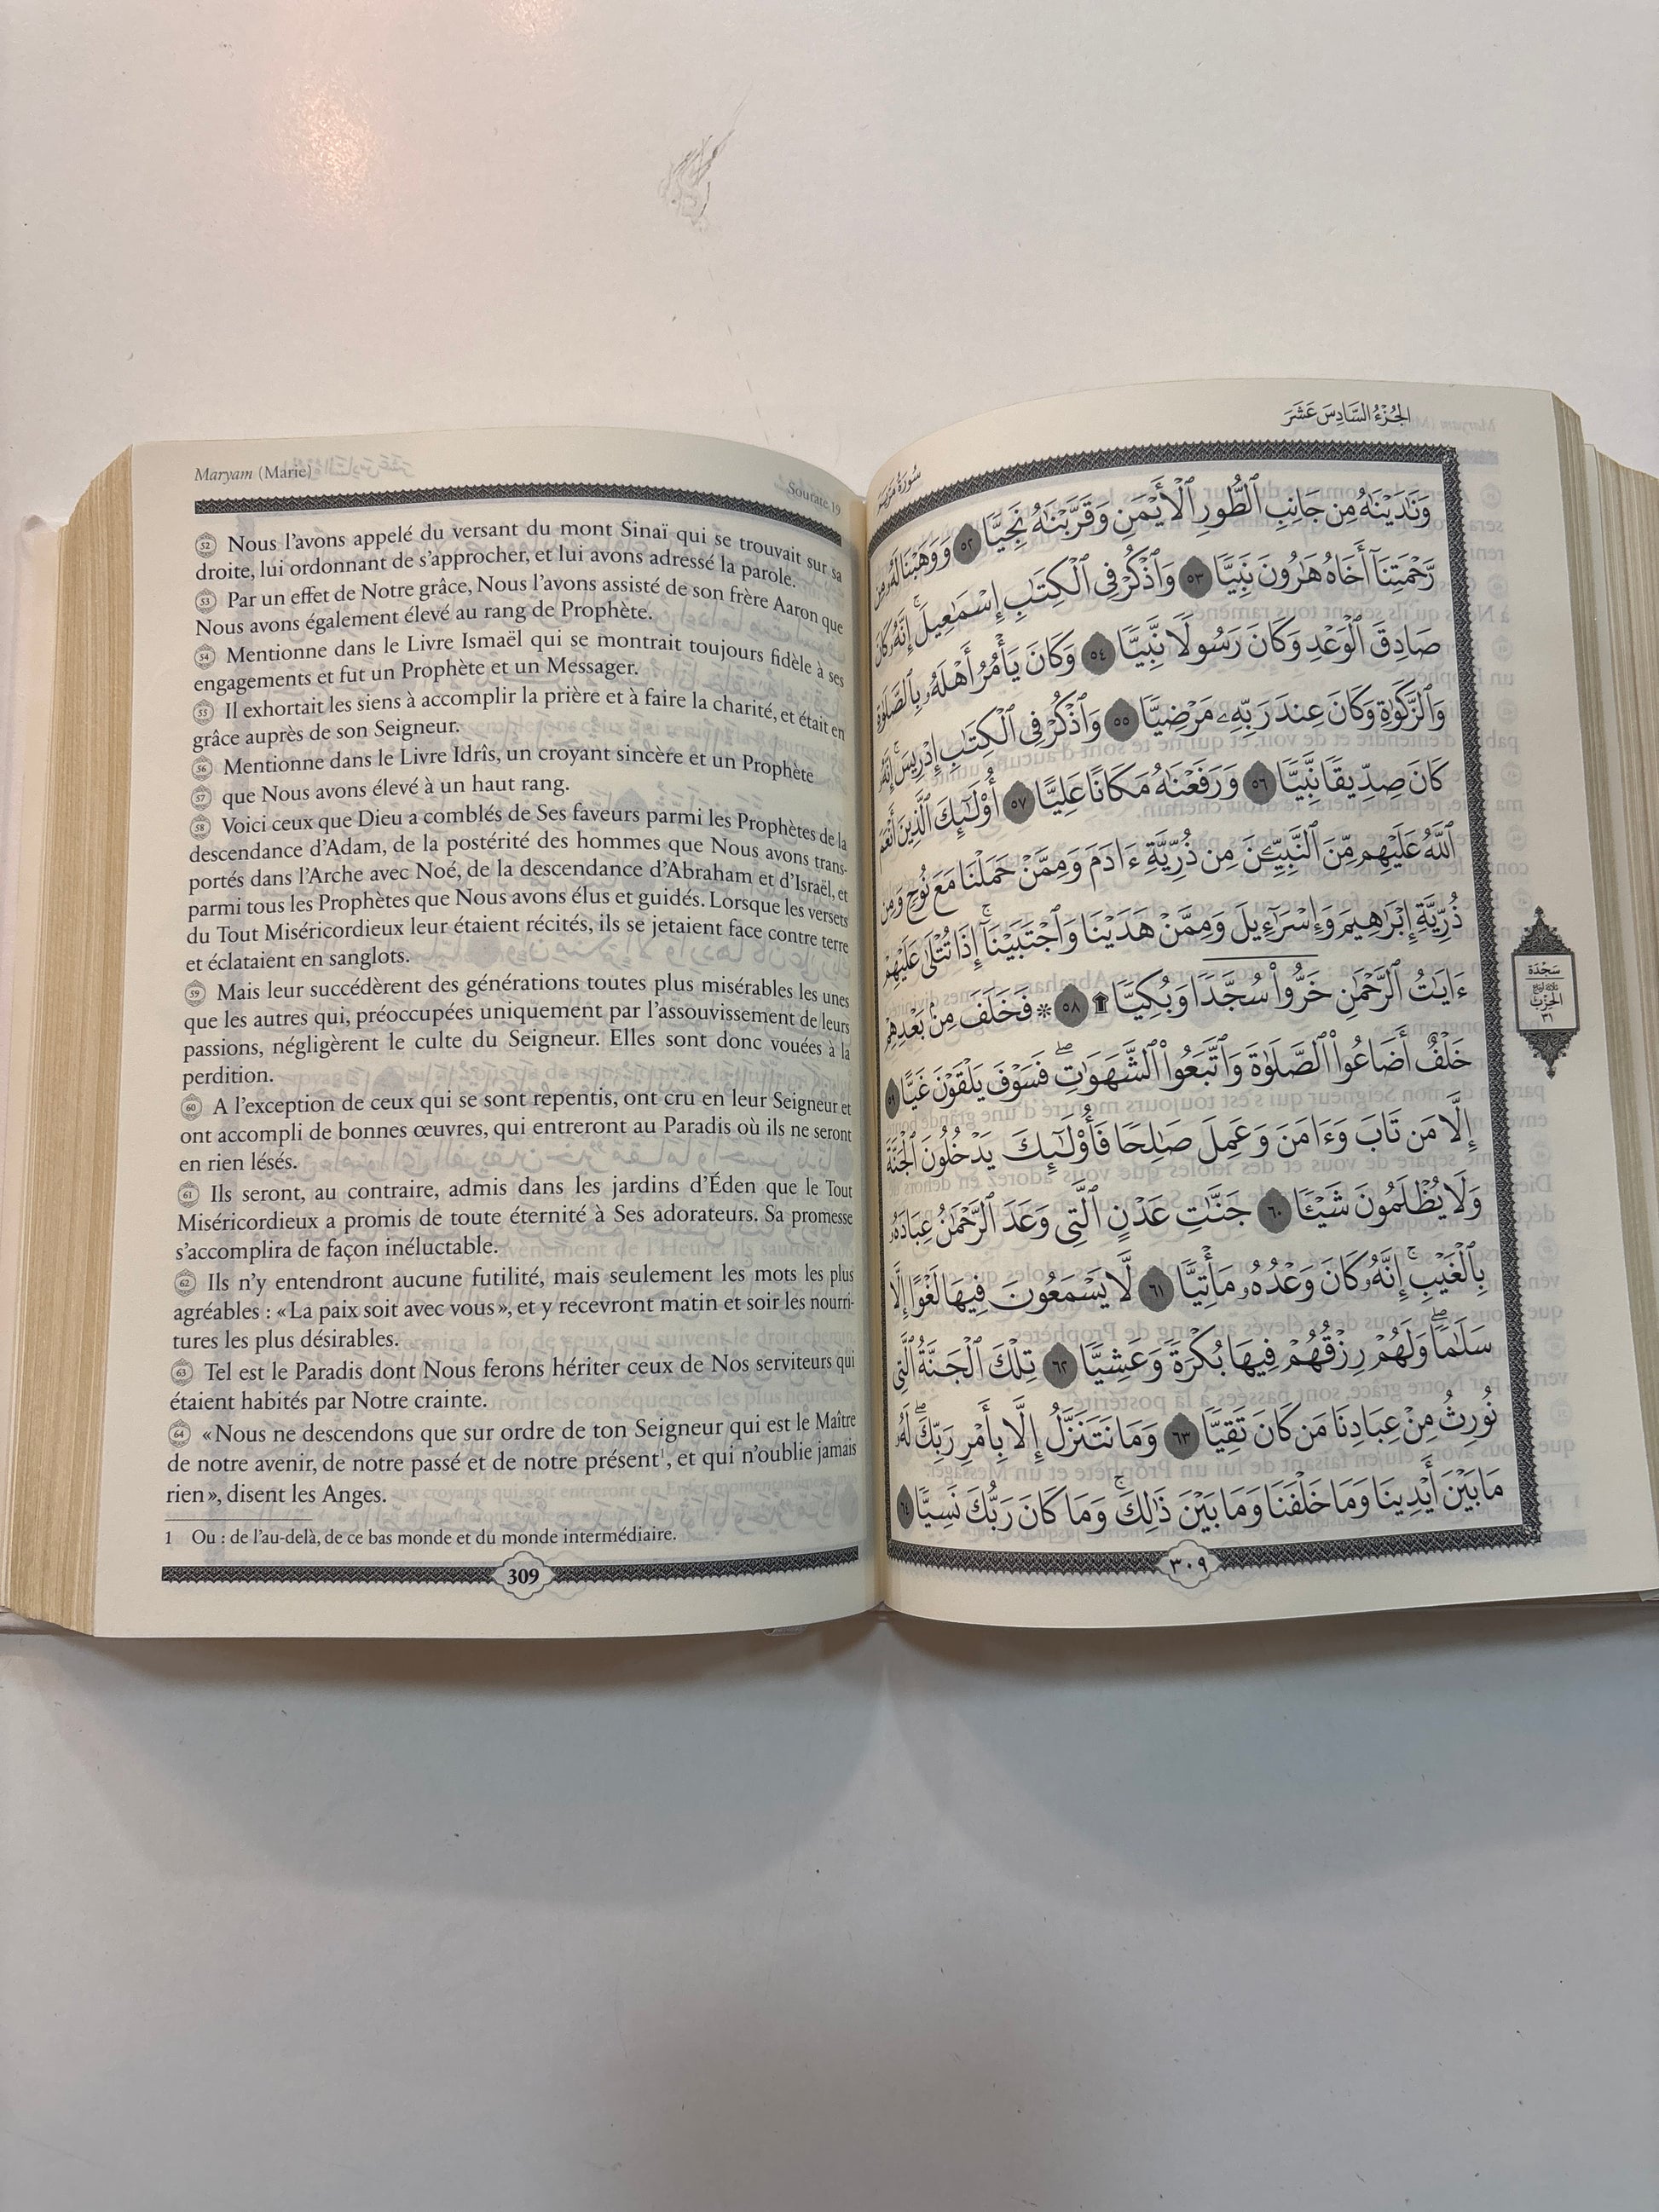 Maryam (Marie)
Sourate 19
52 Nous l’avons appelé du versant du mont Sinaï qui se trouvait sur sa
droite, lui ordonnant de s’approcher, et lui avons adressé la parole.
53 Par un effet de Notre grâce, Nous l’avons assisté de son frère Aaron que
Nous avons également élevé au rang de Prophète.
54 Mentionne dans le Livre Ismaël qui se montrait toujours fidèle à ses
engagements et fut un Prophète et un Messager.
55 Il exhortait les siens à accomplir la prière et à faire la charité, et était en
grâce auprès de son Seigneur.
56 Mentionne dans le Livre Idrîs, un croyant sincère et un Prophète
57 que Nous avons élevé à un haut rang.
58 Voici ceux que Dieu a comblés de Ses faveurs parmi les Prophètes de la
descendance d’Adam, de la postérité des hommes que Nous avons trans-
portés dans l’Arche avec Noé, de la descendance d’Abraham et d’Israël, et
parmi tous les Prophètes que Nous avons élus et guidés. Lorsque les versets
du Tout Miséricordieux leur étaient récités, ils se jetaient face contre terre
et éclataient en sanglots.
59 Mais leur succédèrent des générations toutes plus misérables les unes
que les autres qui, préoccupées uniquement par l’assouvissement de leurs
passions, négligèrent le culte du Seigneur. Elles sont donc vouées à la
perdition.
60 A l’exception de ceux qui se sont repentis, ont cru en leur Seigneur et
ont accompli de bonnes œuvres, qui entreront au Paradis où ils ne seront
en rien lésés.
61 Ils seront, au contraire, admis dans les jardins d’Éden que le Tout
Miséricordieux a promis de toute éternité à Ses adorateurs. Sa promesse
s’accomplira de façon inéluctable.
62 Ils n’y entendront aucune futilité, mais seulement les mots les plus
agréables : «La paix soit avec vous», et y recevront matin et soir les nourri-
tures les plus désirables.
63 Tel est le Paradis dont Nous ferons hériter ceux de Nos serviteurs qui
étaient habités par Notre crainte.
64 «Nous ne descendons que sur ordre de ton Seigneur qui est le Maître
de notre avenir, de notre passé et de notre présent¹, et qui n’oublie jamais
rien», disent les Anges.
1 Ou : de l’au-delà, de ce bas monde et du monde intermédiaire.
309
الجُزْءُ السَّادِسَ عَشَرَ
سُورَةُ مَرْيَمَ
وَنَٰدَيْنَٰهُ مِن جَانِبِ ٱلطُّورِ ٱلْأَيْمَنِ وَقَرَّبْنَٰهُ نَجِيًّا ٥٢ وَوَهَبْنَا لَهُۥ مِن
رَّحْمَتِنَآ أَخَاهُ هَٰرُونَ نَبِيًّا ٥٣ وَٱذْكُرْ فِى ٱلْكِتَٰبِ إِسْمَٰعِيلَ ۚ إِنَّهُۥ كَانَ
صَادِقَ ٱلْوَعْدِ وَكَانَ رَسُولًا نَّبِيًّا ٥٤ وَكَانَ يَأْمُرُ أَهْلَهُۥ بِٱلصَّلَوٰةِ
وَٱلزَّكَوٰةِ وَكَانَ عِندَ رَبِّهِۦ مَرْضِيًّا ٥٥ وَٱذْكُرْ فِى ٱلْكِتَٰبِ إِدْرِيسَ ۚ إِنَّهُۥ
كَانَ صِدِّيقًا نَّبِيًّا ٥٦ وَرَفَعْنَٰهُ مَكَانًا عَلِيًّا ٥٧ أُو۟لَٰٓئِكَ ٱلَّذِينَ أَنْعَمَ
ٱللَّهُ عَلَيْهِم مِّنَ ٱلنَّبِيِّۦنَ مِن ذُرِّيَّةِ ءَادَمَ وَمِمَّنْ حَمَلْنَا مَعَ نُوحٍ وَمِن
ذُرِّيَّةِ إِبْرَٰهِيمَ وَإِسْرَٰٓءِيلَ وَمِمَّنْ هَدَيْنَا وَٱجْتَبَيْنَآ ۚ إِذَا تُتْلَىٰ عَلَيْهِمْ
ءَايَٰتُ ٱلرَّحْمَٰنِ خَرُّوا۟ سُجَّدًا وَبُكِيًّا ۩ ٥٨ * فَخَلَفَ مِنۢ بَعْدِهِمْ
خَلْفٌ أَضَاعُوا۟ ٱلصَّلَوٰةَ وَٱتَّبَعُوا۟ ٱلشَّهَوَٰتِ ۖ فَسَوْفَ يَلْقَوْنَ غَيًّا ٥٩
إِلَّا مَن تَابَ وَءَامَنَ وَعَمِلَ صَٰلِحًا فَأُو۟لَٰٓئِكَ يَدْخُلُونَ ٱلْجَنَّةَ
وَلَا يُظْلَمُونَ شَيْـًٔا ٦٠ جَنَّٰتِ عَدْنٍ ٱلَّتِى وَعَدَ ٱلرَّحْمَٰنُ عِبَادَهُۥ
بِٱلْغَيْبِ ۚ إِنَّهُۥ كَانَ وَعْدُهُۥ مَأْتِيًّا ٦١ لَّا يَسْمَعُونَ فِيهَا لَغْوًا إِلَّا
سَلَٰمًا ۖ وَلَهُمْ رِزْقُهُمْ فِيهَا بُكْرَةً وَعَشِيًّا ٦٢ تِلْكَ ٱلْجَنَّةُ ٱلَّتِى
نُورِثُ مِنْ عِبَادِنَا مَن كَانَ تَقِيًّا ٦٣ وَمَا نَتَنَزَّلُ إِلَّا بِأَمْرِ رَبِّكَ ۖ لَهُۥ
مَا بَيْنَ أَيْدِينَا وَمَا خَلْفَنَا وَمَا بَيْنَ ذَٰلِكَ ۚ وَمَا كَانَ رَبُّكَ نَسِيًّا ٦٤
سَجْدَة
ثلاثة أرباع
الحِزْب
٣١
٣٠٩